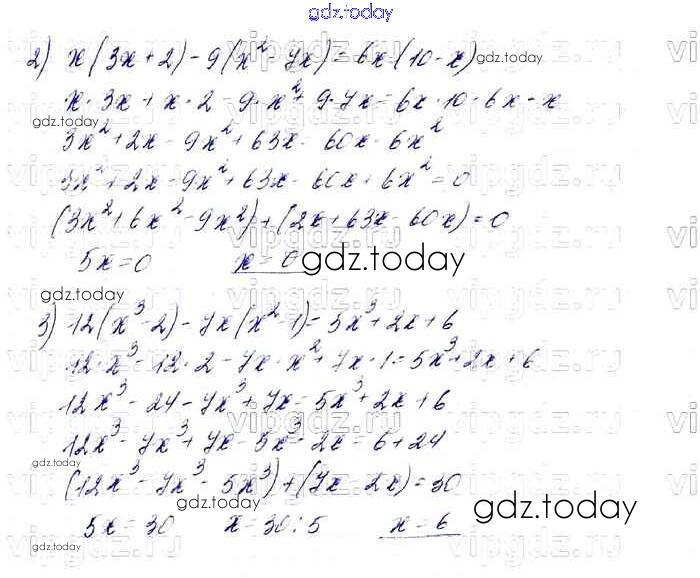 gdz.today
2) x(3x+2)-9(x²-7x)=6x(10-x) gdz.today
x·3x+x·2-9·x²+9·7x=6x·10-6x·x
gdz.today
3x²+2x-9x²+63x=60x-6x²
3x²+2x-9x²+63x-60x+6x²=0
(3x²+6x²-9x²)+(2x+63x-60x)=0
5x=0 x=0 gdz.today
gdz.today
3) 12(x³-2)-7x(x²-1)=5x³+2x+6
12·x³-12·2-7x·x²+7x·1=5x³+2x+6
12x³-24-7x³+7x=5x³+2x+6
12x³-7x³+7x-5x³-2x=6+24
gdz.today
(12x³-7x³-5x³)+(7x-2x)=30
gdz.today
5x=30 x=30:5 x=6 gdz.today
gdz.today
vipgdz.ru